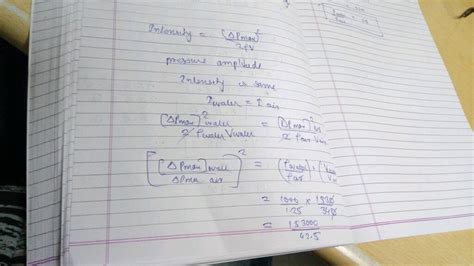 Intensity = [ΔPmax]²/2ρV
pressure amplitude
Intensity is same
Iwater = I air
[ΔPmax]² water / 2ρwater Vwater = [ΔPmax]² air / 2ρair Vair
[[ΔPmax] water / ΔPmax air]² =
= 1000/1.25 ×
= 153000/42.5